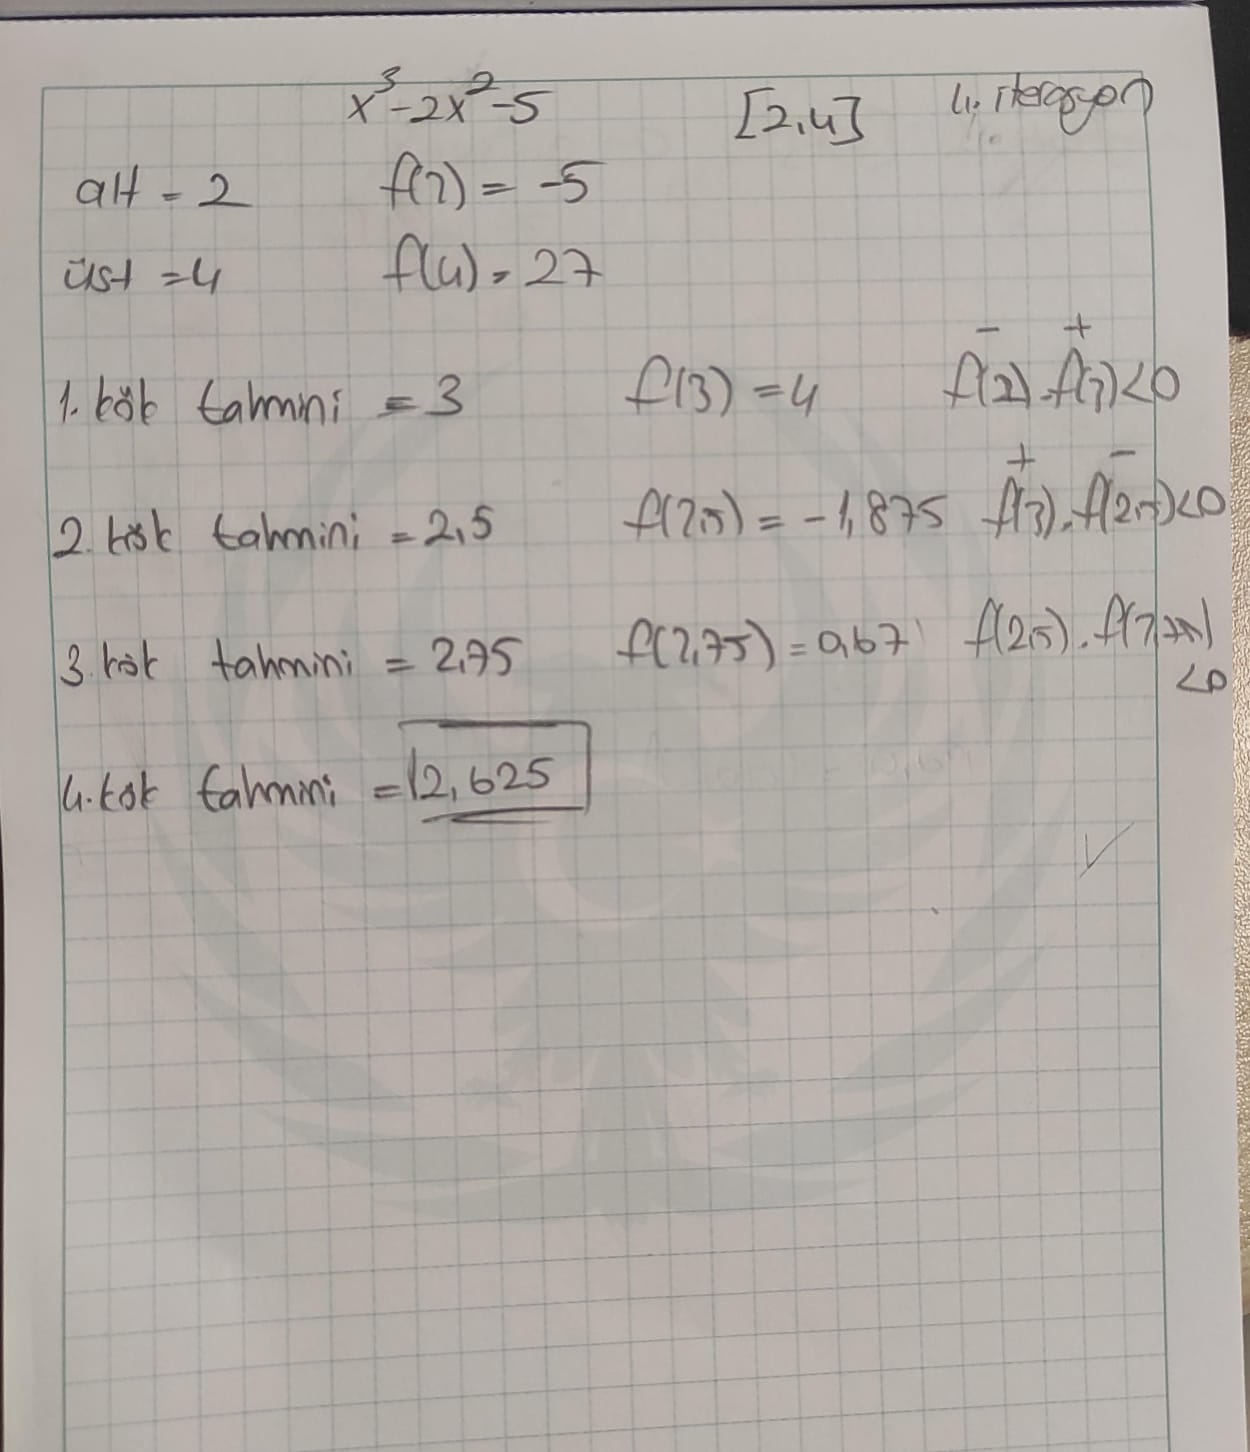 x³-2x²-5 [2,4] 4. iterasyon
alt = 2 f(2) = -5
üst = 4 f(4) = 27
1. kök tahmini = 3 f(3) = 4 f(2).f(3)<0 - +
2. kök tahmini = 2,5 f(2,5) = -1,875 f(3).f(2,5)<0 + -
3. kök tahmini = 2,75 f(2,75) = 0,67 f(2,5).f(2,75) <0
4. kök tahmini = 2,625